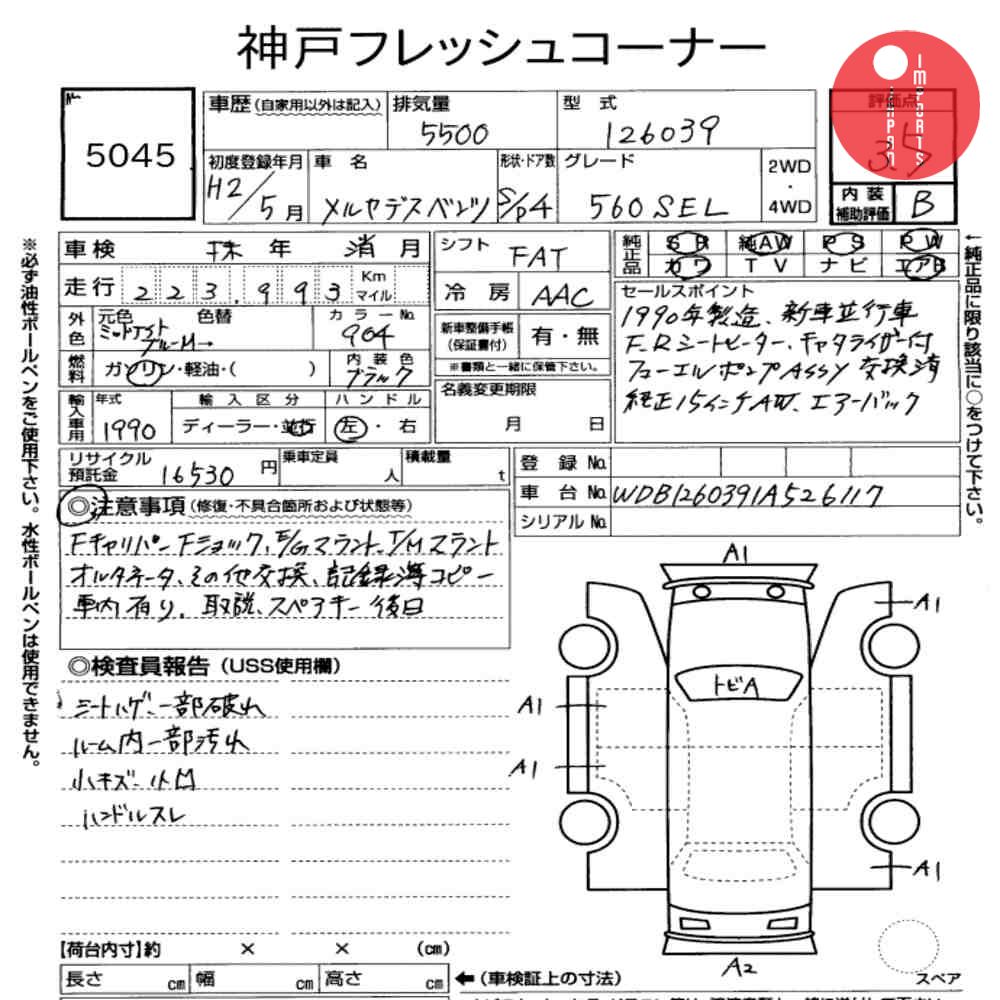 神戸フレッシュコーナー
IMPORTS
JAPAN
№
5045
車歴(自家用以外は記入)
排気量
5500
型 式
126039
評価点
3.5
初度登録年月
H2/5月
車 名
メルセデスベンツ
形状・ドア数
S/D4
グレード
560SEL
2WD
・
4WD
内装
補助評価
B
※必ず油性ボールペンをご使用下さい。水性ボールペンは使用できません。
車検 抹 年 消 月
走行 223,993 Km マイル
外色
元色
ミッドナイト
ブルーM→
色替
カラーNo.
904
燃料
ガソリン・軽油・( )
内装色
ブラック
輸入車用
年式
1990
輸入区分
ディーラー・並行
ハンドル
左・右
シフト FAT
冷房 AAC
新車整備手帳
(保証書付)
有・無
※書類と一緒に保管下さい。
名義変更期限
月 日
純正品
SR 純AW PS PW
カワ TV ナビ エアB
セールスポイント
1990年製造、新車並行車
F.Rシートヒーター、キャタライザー付
フューエルポンプASSY交換済
純正15インチAW、エアーバック
←純正品に限り該当に○をつけて下さい。
リサイクル
預託金
16530円
乗車定員
人
積載量
t
登録No.
車台No. WDB1260391A526117
シリアルNo.
◎注意事項(修復・不具合箇所および状態等)
Fキャリパー、Fショック、E/Gマウント、T/Mマウント
オルタネータ、その他交換、記録簿コピー
車内有り、取説、スペアキー後日
◎検査員報告(USS使用欄)
シートハゲ、一部破れ
ルーム内一部汚れ
小キズ、小凹
ハンドルスレ
A1
A1
トビA
A1
A1
A1
A2
スペア
【荷台内寸】約 × × (cm)
長さ cm 幅 cm 高さ cm
←(車検証上の寸法)